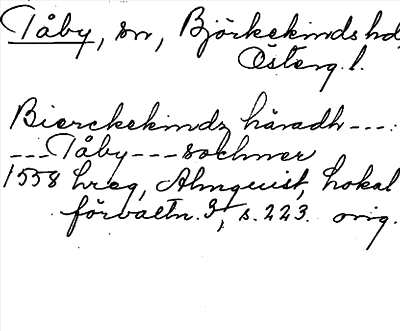 Tåby, sn, Björkekinds hd,
Österg. l.
Bierckekindz häradh ---.
--- Tåby --- sochner
1558 hreg, Almquist, Lokal
förvaltn. 3, s. 223. orig.